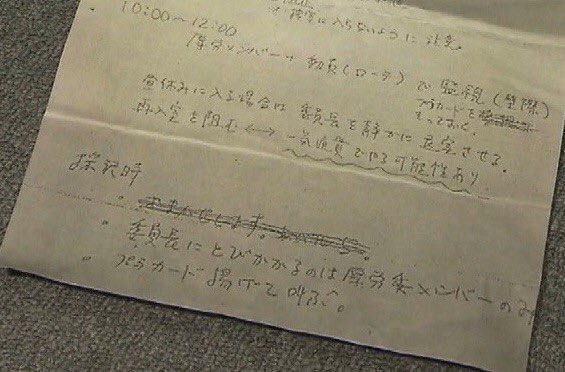 に入らないように注意。
10:00〜12:00
厚労メンバー＋動員(ローテ)で監視(壁際)
プラカードを
もっておく。
昼休みに入る場合は委員長を静かに退室させる。
再入室を阻む ←→ 一気通貫でやる可能性あり
採決時
・委員長にとびかかるのは厚労委メンバーのみ
・プラカード掲げて叫ぶ。